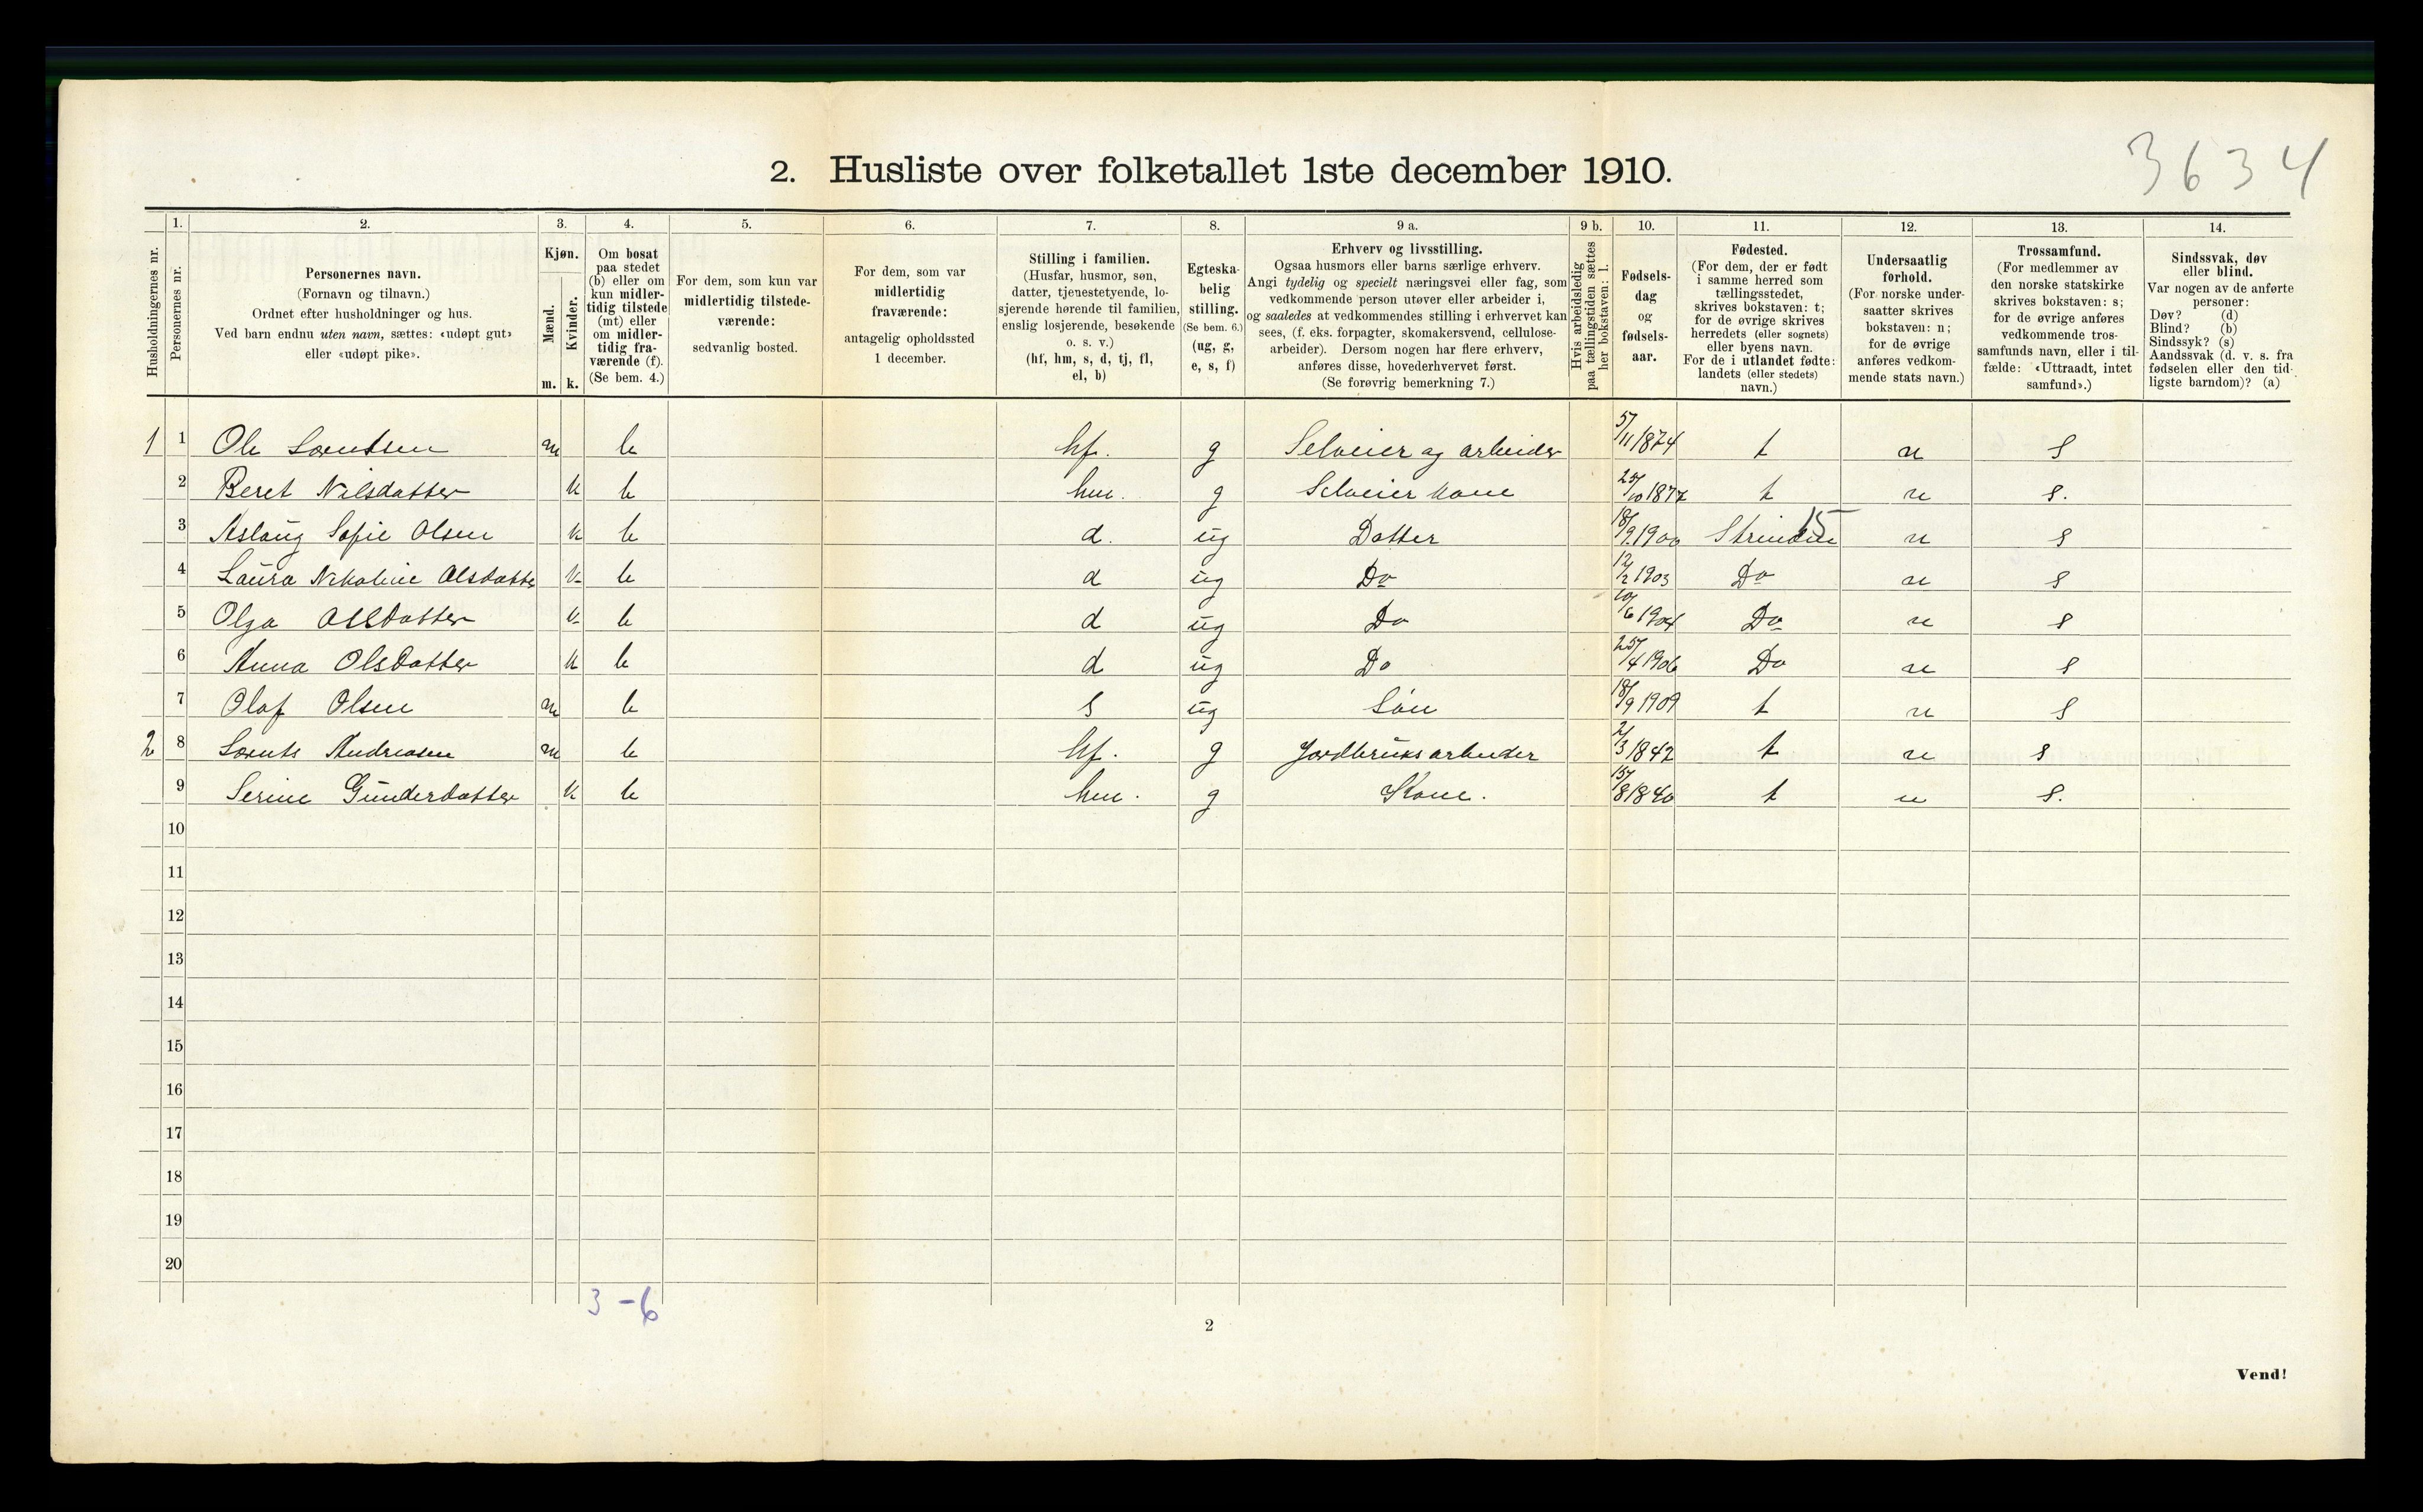 3634
2. Husliste over folketallet 1ste december 1910.
Husholdningernes nr.
1.
Personernes nr.
2.
Personernes navn.
(Fornavn og tilnavn.)
Ordnet efter husholdninger og hus.
Ved barn endnu uten navn, sættes: «udøpt gut»
eller «udøpt pike».
3.
Kjøn.
Mænd.
Kvinder.
m. k.
4.
Om bosat
paa stedet
(b) eller om
kun midler-
tidig tilstede
(mt) eller
om midler-
tidig fra-
værende (f).
(Se bem. 4.)
5.
For dem, som kun var
midlertidig tilstede-
værende:
sedvanlig bosted.
6.
For dem, som var
midlertidig
fraværende:
antagelig opholdssted
1 december.
7.
Stilling i familien.
(Husfar, husmor, søn,
datter, tjenestetyende, lo-
sjerende hørende til familien,
enslig losjerende, besøkende
o. s. v.)
(hf, hm, s, d, tj, fl,
el, b)
8.
Egteska-
belig
stilling.
(Se bem. 6.)
(ug, g,
e, s, f)
9 a.
Erhverv og livsstilling.
Ogsaa husmors eller barns særlige erhverv.
Angi tydelig og specielt næringsvei eller fag, som
vedkommende person utøver eller arbeider i,
og saaledes at vedkommendes stilling i erhvervet kan
sees, (f. eks. forpagter, skomakersvend, cellulose-
arbeider). Dersom nogen har flere erhverv,
anføres disse, hovederhvervet først.
(Se forøvrig bemerkning 7.)
9 b.
Hvis arbeidsledig
paa tællingstiden sættes
her bokstaven: l.
10.
Fødsels-
dag
og
fødsels-
aar.
11.
Fødested.
(For dem, der er født
i samme herred som
tællingsstedet,
skrives bokstaven: t;
for de øvrige skrives
herredets (eller sognets)
eller byens navn.
For de i utlandet fødte:
landets (eller stedets)
navn.)
12.
Undersaatlig
forhold.
(For norske under-
saatter skrives
bokstaven: n;
for de øvrige
anføres vedkom-
mende stats navn.)
13.
Trossamfund.
(For medlemmer av
den norske statskirke
skrives bokstaven: s;
for de øvrige anføres
vedkommende tros-
samfunds navn, eller i til-
fælde: «Uttraadt, intet
samfund».)
14.
Sindssvak, døv
eller blind.
Var nogen av de anførte
personer:
Døv? (d)
Blind? (b)
Sindssyk? (s)
Aandssvak (d. v. s. fra
fødselen eller den tid-
ligste barndom)? (a)
1 1 Ole Lorentsen m b hf. g Selveier og arbeider 5/11 1874 t n s
2 Beret Nilsdatter k b hm. g Selveier kone t n s.
3 Aslaug Sofie Olsen k b d. ug Datter 18/9 1900 Strinden 15 n s
4 Laura Nikoline Olsdatter k b d ug Do 12/2 1903 Do n s
5 Olga Olsdatter k b d ug Do 1904 Do n s
6 Anna Olsdatter k b d ug Do 25/4 1906 Do n s
7 Olaf Olsen m b s ug Søn 18/9 1909 t n s
2 8 Lorents Andreasen m b hf. g Jordbruksarbeider 2/3 1842 t n s
9 Serine Gunderdatter k b hm. g Kone. 15/8 1840 t n s.
10
11
12
13
14
15
16
17
18
19
20
3-6
2
Vend!